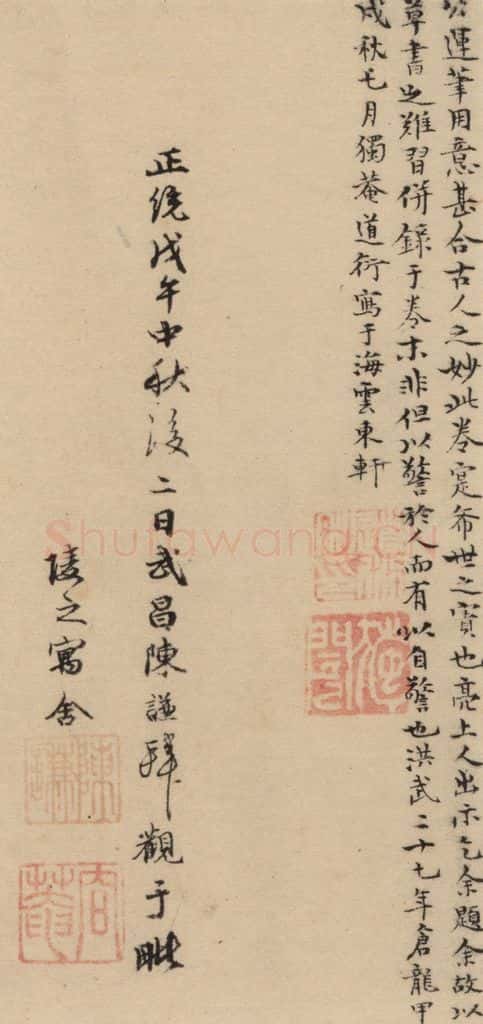 公運筆用意甚合古人之妙此卷寔希世之寶也亮上人出示乞余題余故以
草書之難習併錄于卷末非但以警於人而有以自警也洪武二十七年倉龍甲
戌秋七月獨菴道衍寫于海雲東軒
正統戊午中秋後二日武昌陳謙拜觀于毗
陵之寓舍
Shufawang.cn
陳謙